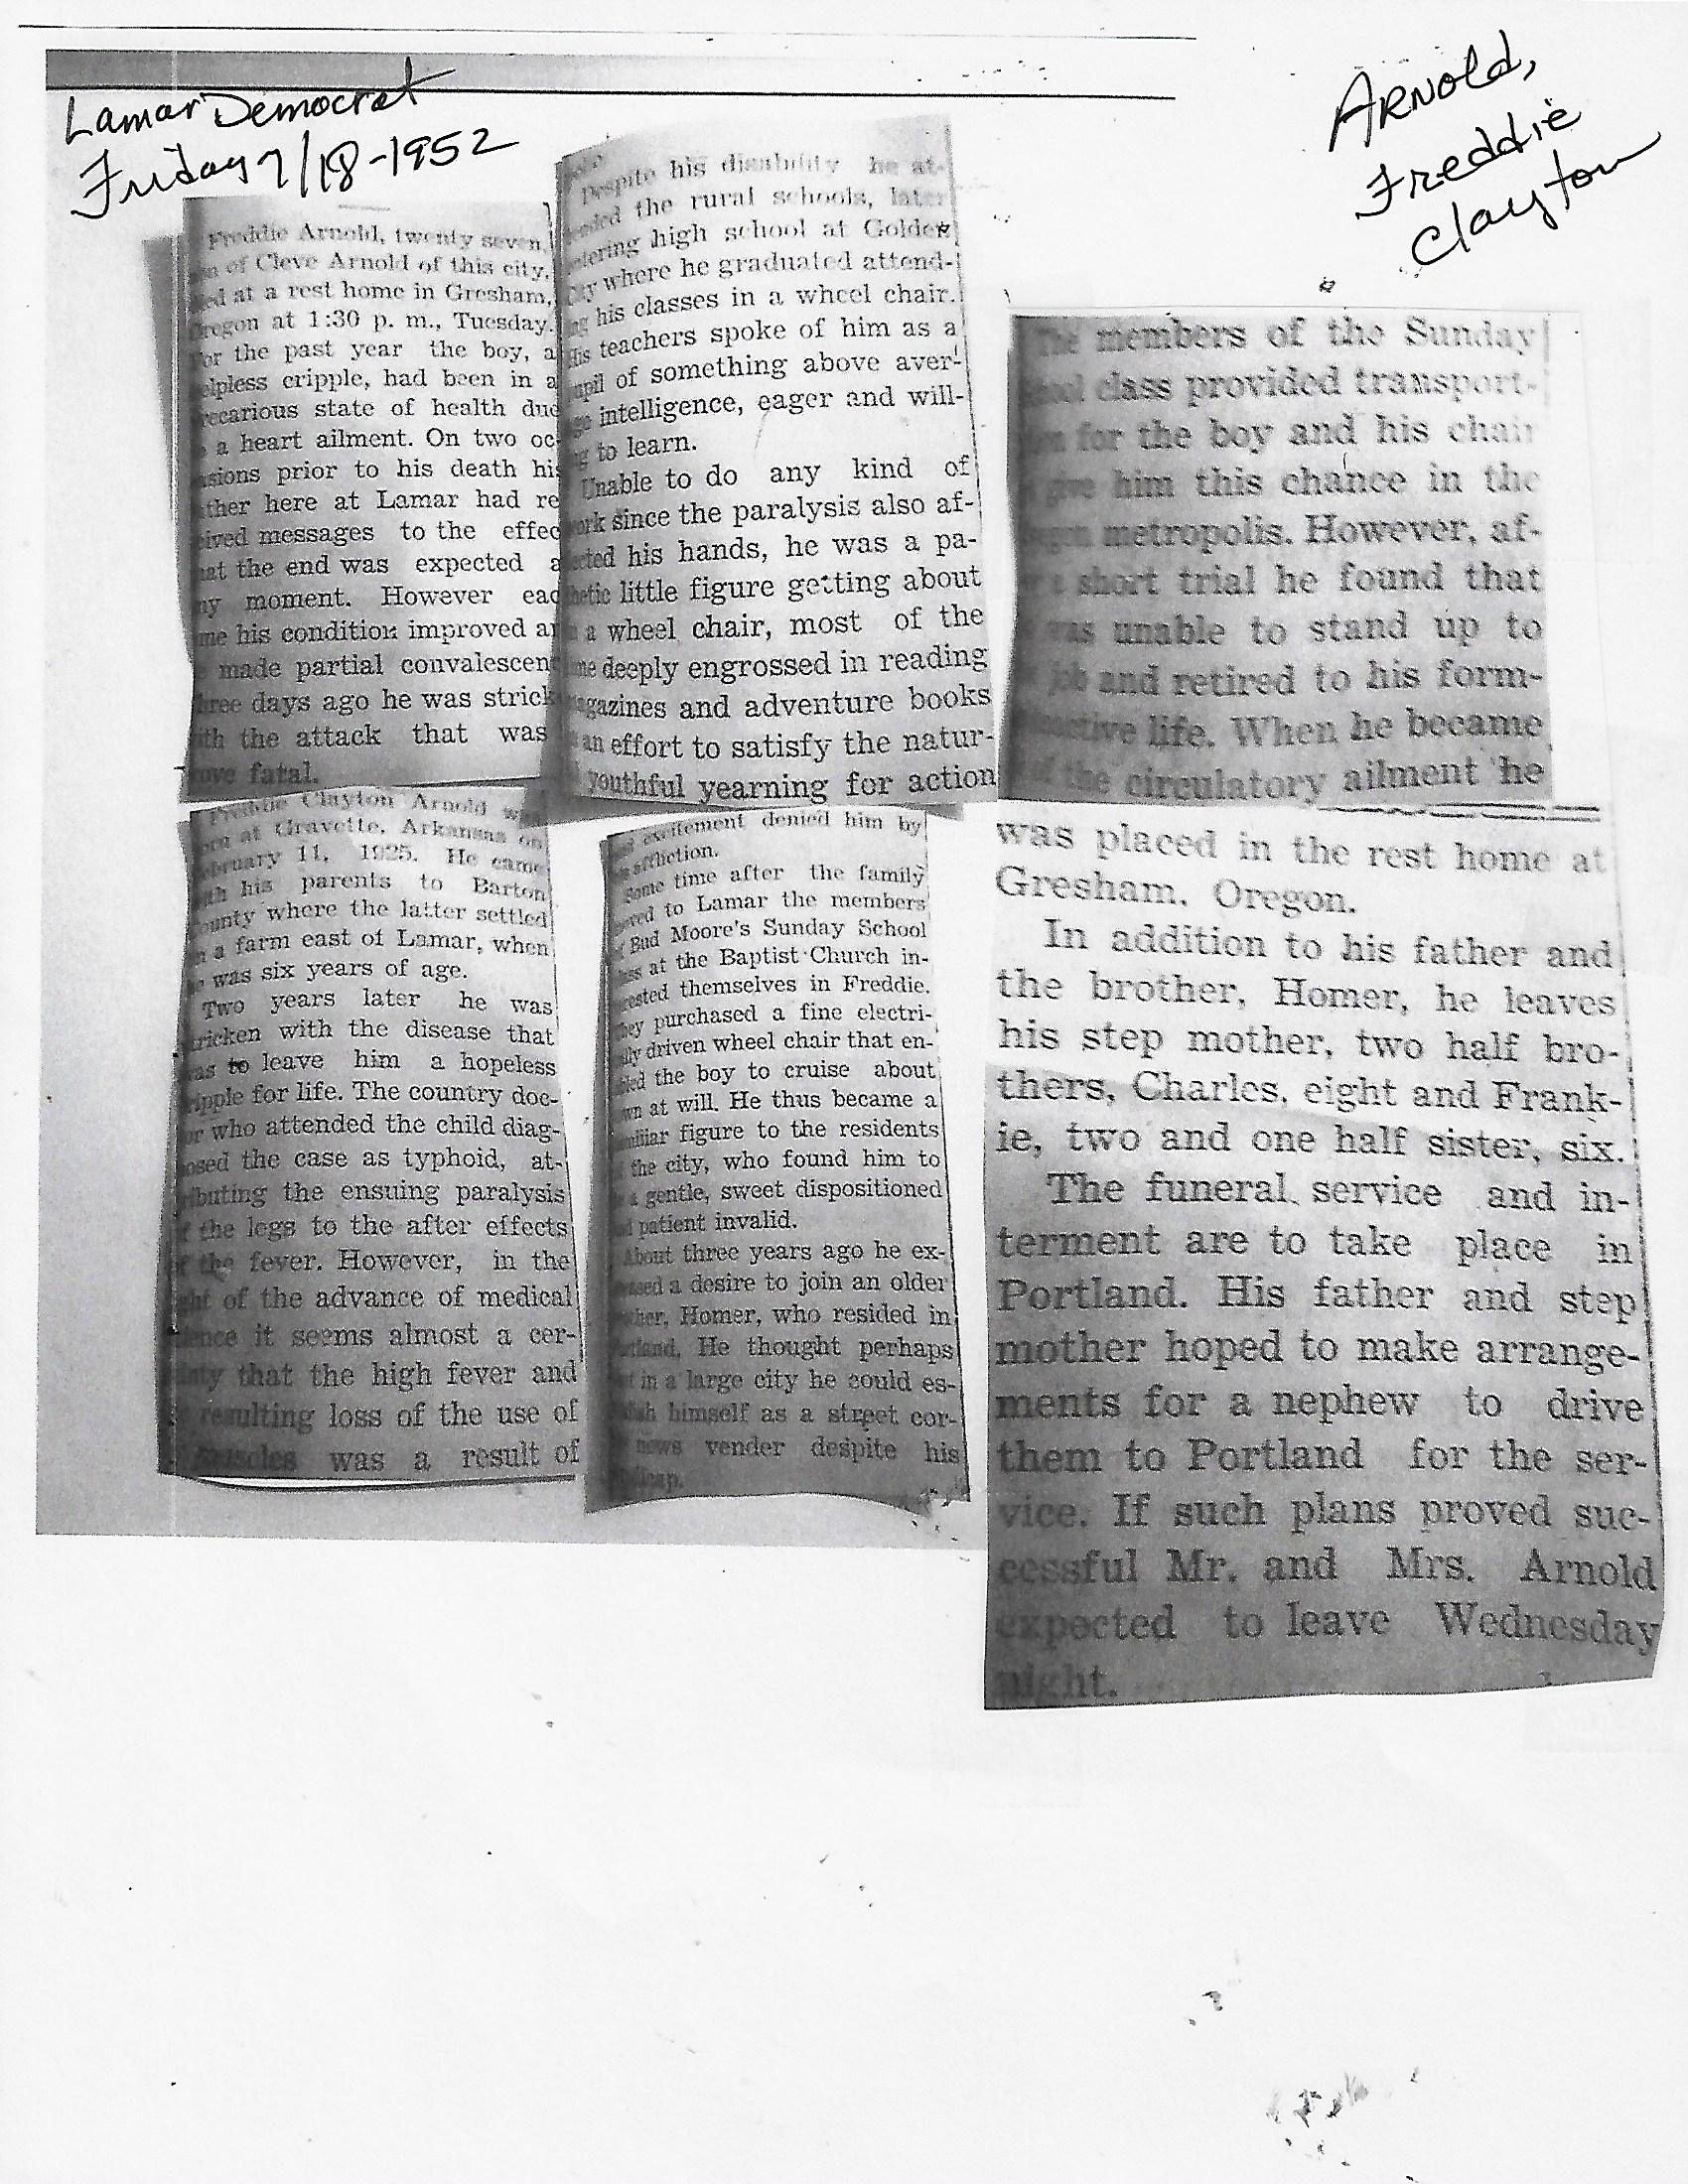 Lamar Democrat
Friday 7/18-1952
Arnold,
Freddie
Clayton
Freddie Arnold, twenty seven,
of Cleve Arnold of this city,
at a rest home in Gresham,
Oregon at 1:30 p. m., Tuesday.
For the past year the boy, a
cripple, had been in a
state of health due
a heart ailment. On two oc-
prior to his death his
here at Lamar had re
messages to the effec
the end was expected a
moment. However eac
his condition improved an
made partial convalescen
days ago he was strick
the attack that was
fatal.
Freddie Clayton Arnold
at Gravette, Arkansas on
11, 1925. He came
his parents to Barton
where the latter settled
a farm east of Lamar, when
was six years of age.
Two years later he was
with the disease that
was to leave him a hopeless
for life. The country doc-
who attended the child diag-
the case as typhoid, at-
the ensuing paralysis
the legs to the after effects
the fever. However, in the
of the advance of medical
it seems almost a cer-
that the high fever and
resulting loss of the use of
muscles was a result of
Despite his disability he at-
the rural schools, later
high school at Golden
where he graduated attend-
his classes in a wheel chair.
His teachers spoke of him as a
of something above aver-
intelligence, eager and will-
to learn.
Unable to do any kind of
since the paralysis also af-
his hands, he was a pa-
little figure getting about
a wheel chair, most of the
deeply engrossed in reading
and adventure books
an effort to satisfy the natur-
youthful yearning for action
excitement denied him by
affliction.
Some time after the family
to Lamar the members
Bud Moore's Sunday School
at the Baptist Church in-
themselves in Freddie.
They purchased a fine electri-
driven wheel chair that en-
the boy to cruise about
at will. He thus became a
figure to the residents
the city, who found him to
a gentle, sweet dispositioned
patient invalid.
About three years ago he ex-
a desire to join an older
Homer, who resided in
He thought perhaps
in a large city he could es-
himself as a street cor-
news vender despite his
The members of the Sunday
class provided transport-
for the boy and his chair
him this chance in the
metropolis. However, af-
short trial he found that
was unable to stand up to
and retired to his form-
life. When he became
the circulatory ailment he
was placed in the rest home at
Gresham, Oregon.
In addition to his father and
the brother, Homer, he leaves
his step mother, two half bro-
thers, Charles, eight and Frank-
ie, two and one half sister, six.
The funeral service and in-
terment are to take place in
Portland. His father and step
mother hoped to make arrange-
ments for a nephew to drive
them to Portland for the ser-
vice. If such plans proved suc-
cessful Mr. and Mrs. Arnold
expected to leave Wednesday
night.